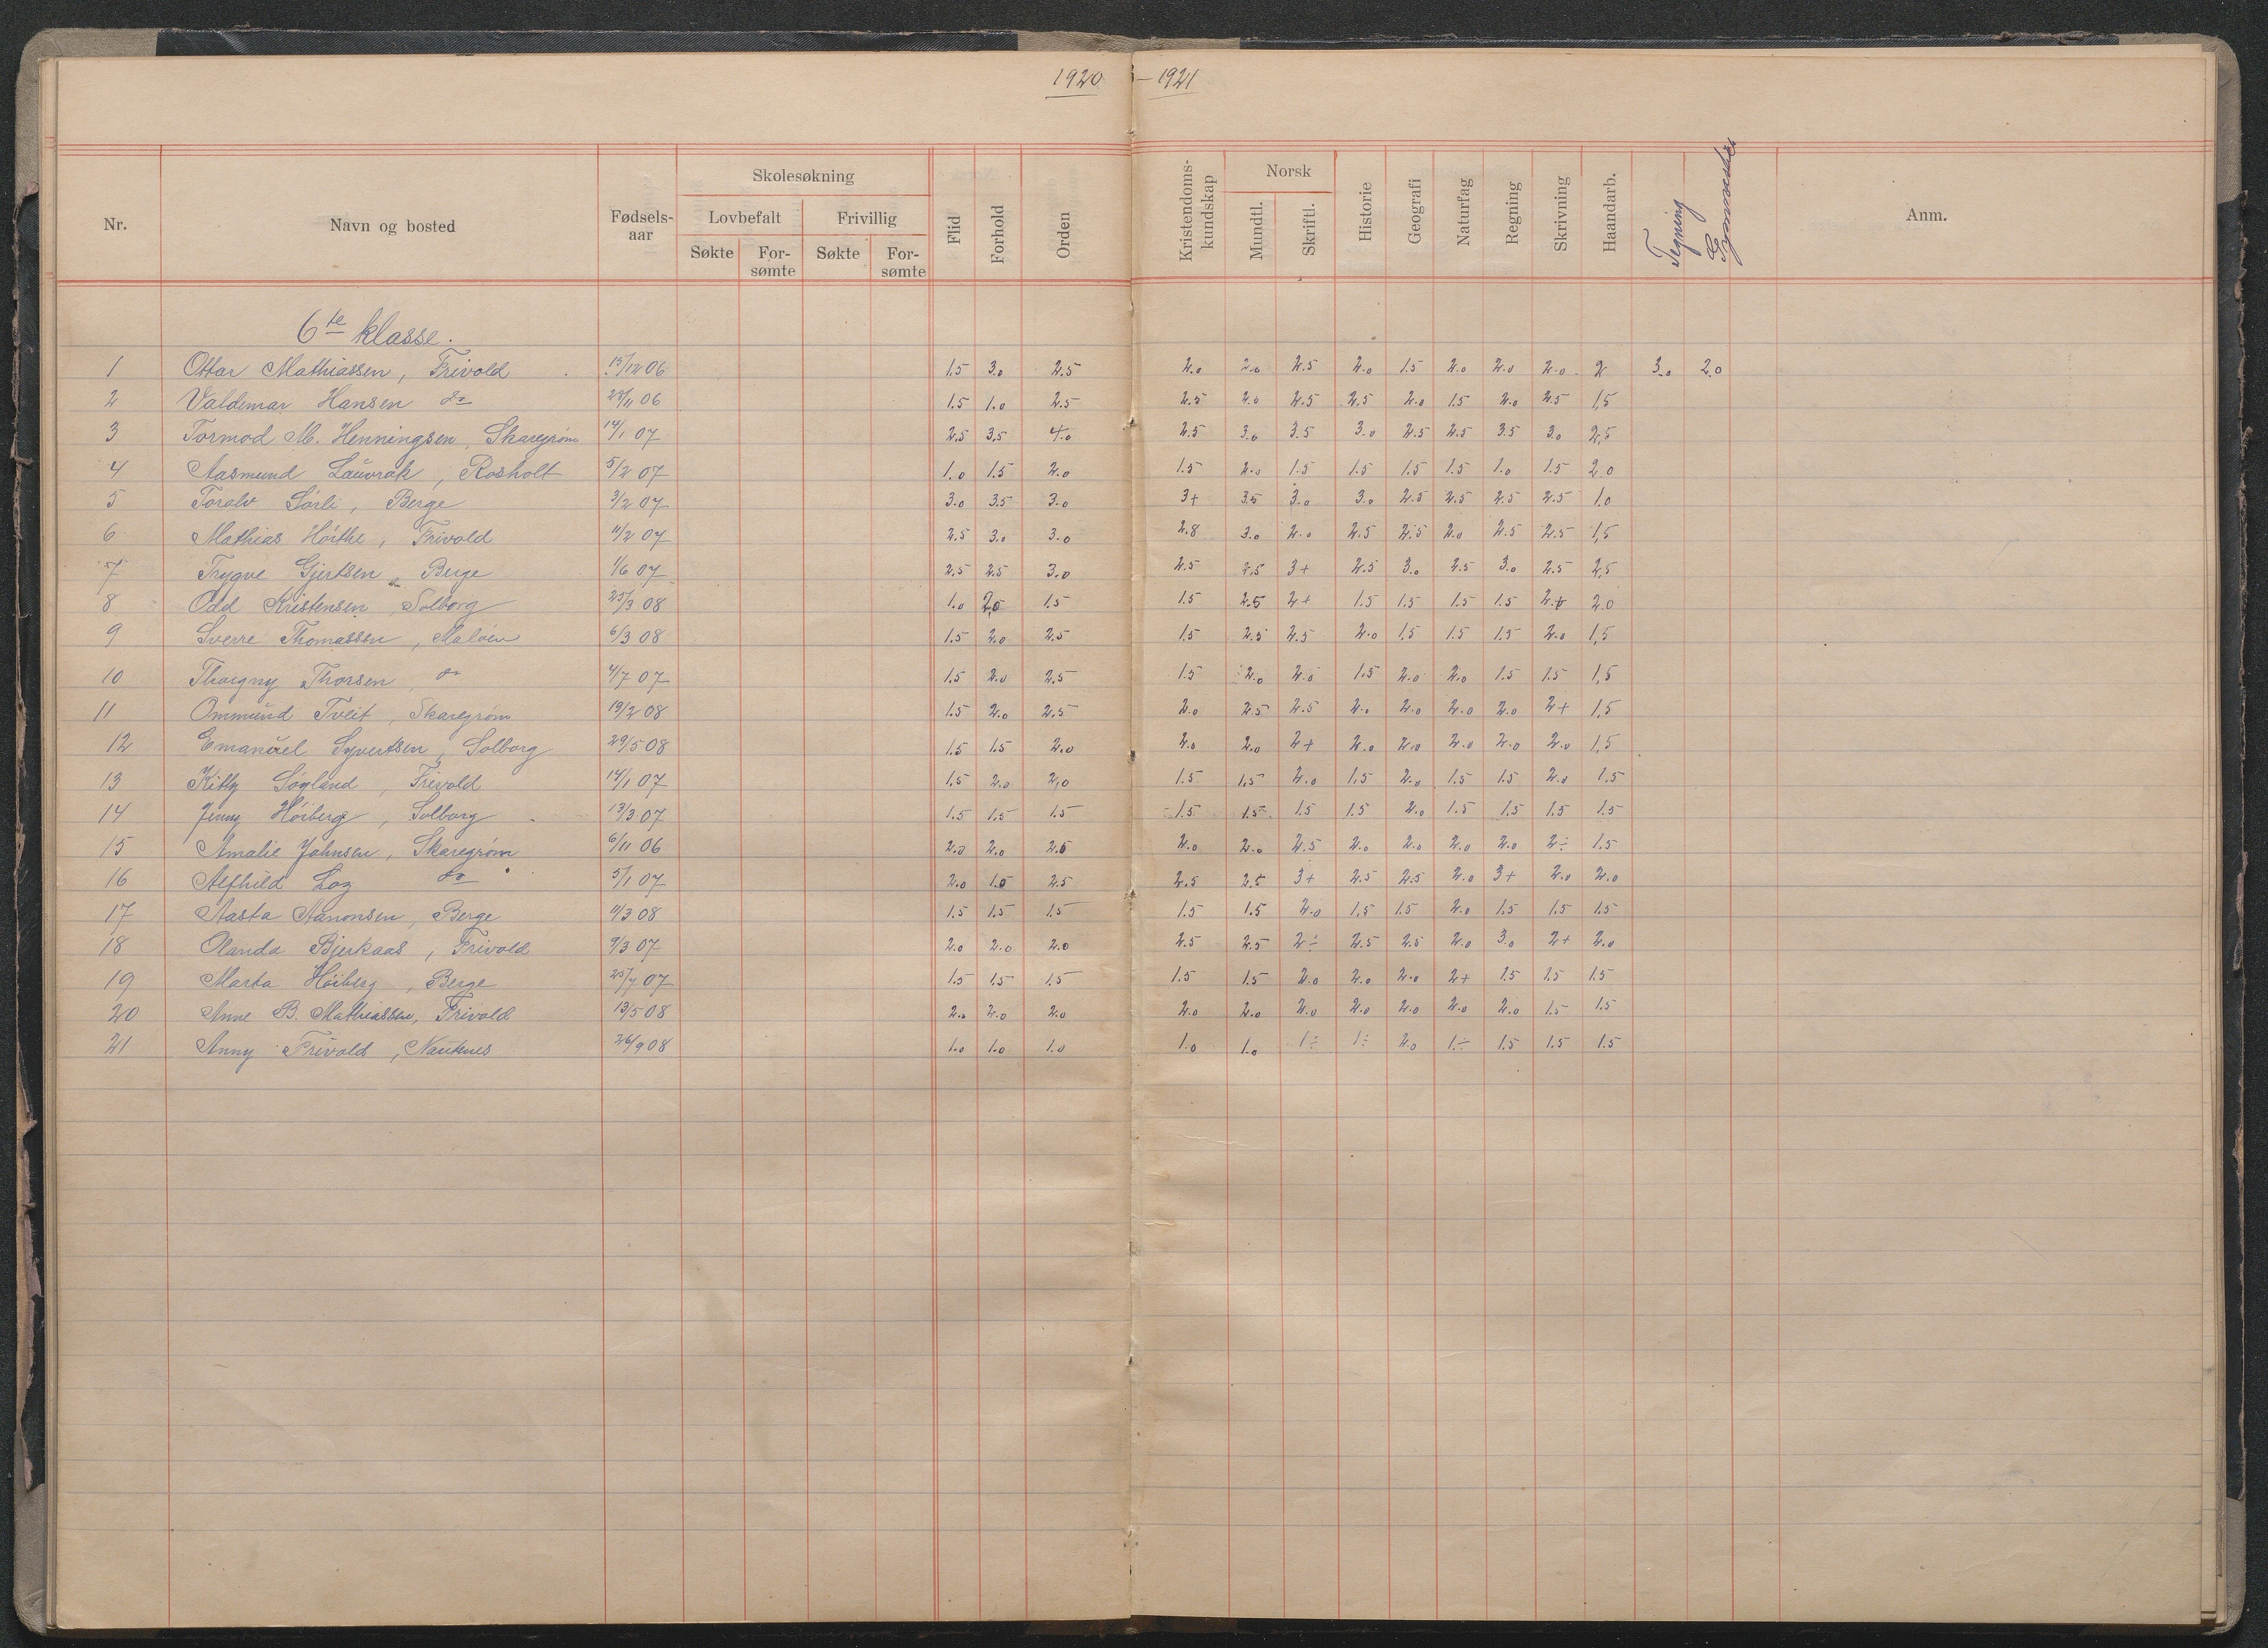 1920 – 1921
Nr. Navn og bosted Fødsels-aar Skolesøkning Lovbefalt Søkte For-sømte Frivillig Søkte For-sømte Flid Forhold Orden Kristendoms-kundskap Norsk Mundtl. Skriftl. Historie Geografi Naturfag Regning Skrivning Haandarb. Tegning Gymnastik Anm.
6te klasse.
1 Ottar Mathiassen, Frivold 13/12 06 1.5 3.0 2.5 2.0 2.0 2.5 2.0 1.5 2.0 2.0 2.0 2 3.0 2.0
2 Valdemar Hansen do 28/11 06 1.5 1.0 2.5 2.5 2.0 2.5 2.5 2.0 1.5 2.0 2.5 1,5
3 Tormod M. Henningsen, Skaregrøm 14/1 07 2.5 3.5 4.0 2.5 3.0 3.5 3.0 2.5 2.5 3.5 3.0 2,5
4 Aasmund Lauvrak, Rosholt 5/2 07 1.0 1.5 2.0 1.5 2.0 1.5 1.5 1.5 1.5 1.0 1.5 2.0
5 Toralv Sørli, Berge 3/2 07 3.0 3.5 3.0 3+ 3.5 3.0 3.0 2.5 2.5 2.5 2.5 1.0
6 Mathias Hørthe, Frivold 11/2 07 2.5 3.0 3.0 2.8 3.0 2.0 2.5 2.5 2.0 2.5 2.5 1,5
7 Trygve Gjertsen, Berge 1/6 07 2.5 2.5 3.0 2.5 2.5 3+ 2.5 3.0 2.5 3.0 2.5 2,5
8 Odd Kristensen, Solborg 25/3 08 1.0 2.0 1.5 1.5 2.5 2+ 1.5 1.5 1.5 1.5 2+ 2.0
9 Sverre Thomassen, Maløen 6/3 08 1.5 2.0 2.5 1.5 2.5 2.5 2.0 1.5 1.5 1.5 2.0 1,5
10 Thorgny Thorsen, do 4/7 07 1.5 2.0 2.5 1.5 2.0 2.0 1.5 2.0 2.0 1.5 1.5 1,5
11 Ommund Tveit, Skaregrøm 19/2 08 1.5 2.0 2.5 2.0 2.5 2.5 2.0 2.0 2.0 2.0 2+ 1,5
12 Emanuel Syvertsen, Solborg 29/5 08 1.5 1.5 2.0 2.0 2.0 2+ 2.0 2.0 2.0 2.0 2.0 1,5
13 Kitty Søgland, Frivold 14/1 07 1.5 2.0 2,0 1.5 1.5 2.0 1.5 2.0 1.5 1.5 2.0 1.5
14 Jenny Høiberg, Solborg 13/3 07 1.5 1.5 1.5 1.5 1.5 1.5 1.5 2.0 1.5 1.5 1.5 1.5
15 Amalie Johnsen, Skaregrøm 6/11 06 2.0 2.0 2.5 2.0 2.0 2.5 2.0 2.0 2.0 2.0 2÷ 1.5
16 Alfhild Log do 5/1 07 2.0 1.5 2.5 2.5 2.5 3+ 2.5 2.5 2.0 3+ 2.0 2.0
17 Aasta Aanonsen, Berge 11/3 08 1.5 1.5 1.5 1.5 1.5 2.0 1.5 1.5 2.0 1.5 1.5 1.5
18 Olanda Bjerkaas, Frivold 9/3 07 2.0 2.0 2.0 2.5 2.5 2÷ 2.5 2.5 2.0 3.0 2+ 2.0
19 Marta Høiberg, Berge 25/7 07 1.5 1.5 1.5 1.5 1.5 2.0 2.0 2.0 2+ 1.5 1.5 1.5
20 Anne B. Mathiassen, Frivold 13/5 08 2.0 2.0 2.0 2.0 2.0 2.0 2.0 2.0 2.0 2.0 1.5 1.5
21 Anny Frivold, 26/9 08 1.0 1.0 1.0 1.0 1.0 1÷ 1÷ 2.0 1÷ 1.5 1.5 1.5